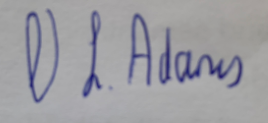 D L. Adams